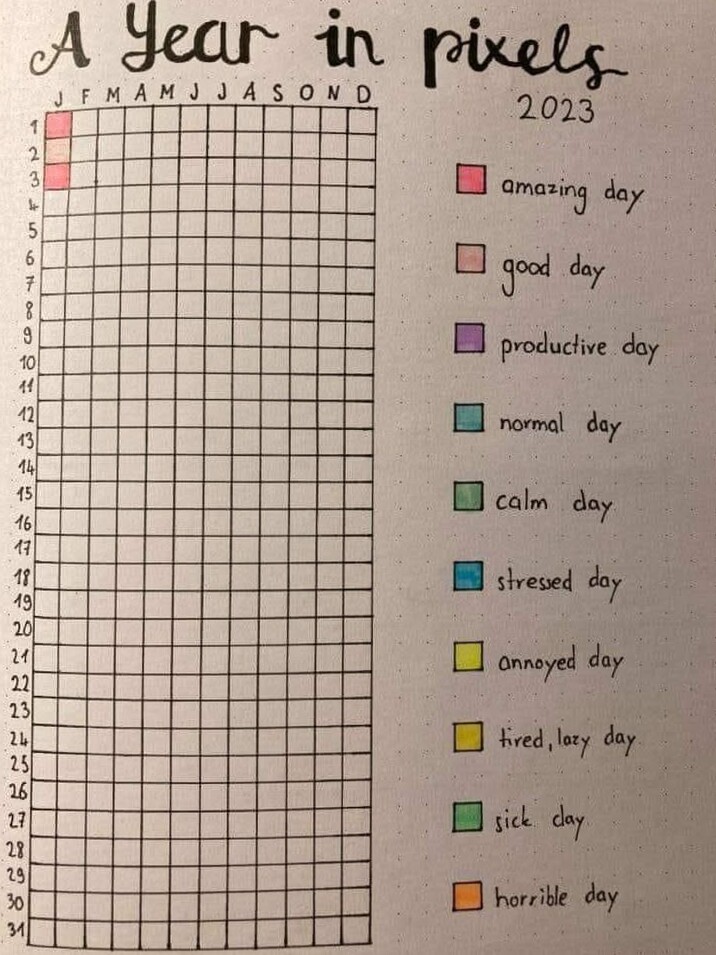 A Year in pixels
2023
J F M A M J J A S O N D
1
2
3
4
5
6
7
8
9
10
11
12
13
14
15
16
17
18
19
20
21
22
23
24
25
26
27
28
29
30
31
amazing day
good day
productive day
normal day
calm day
stressed day
annoyed day
tired, lazy day
sick day
horrible day